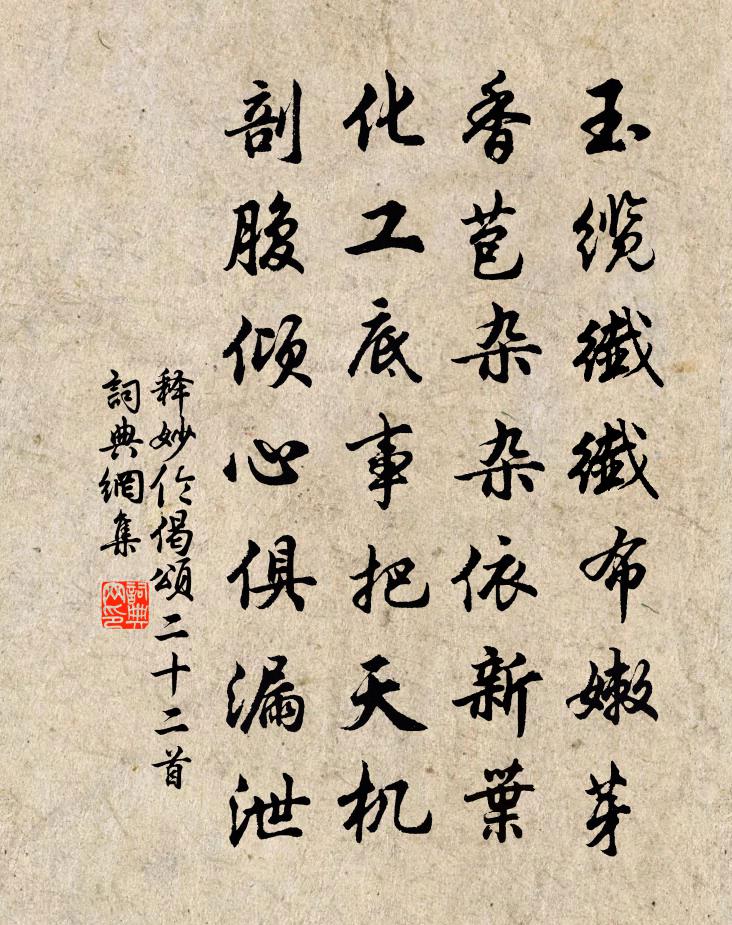 玉缆纖纖布嫩芽
香苞杂杂依新葉
化工底事把天机
剖腹倾心俱漏泄
释妙伦偈頌二十二首
詞典網集
詞典
网印